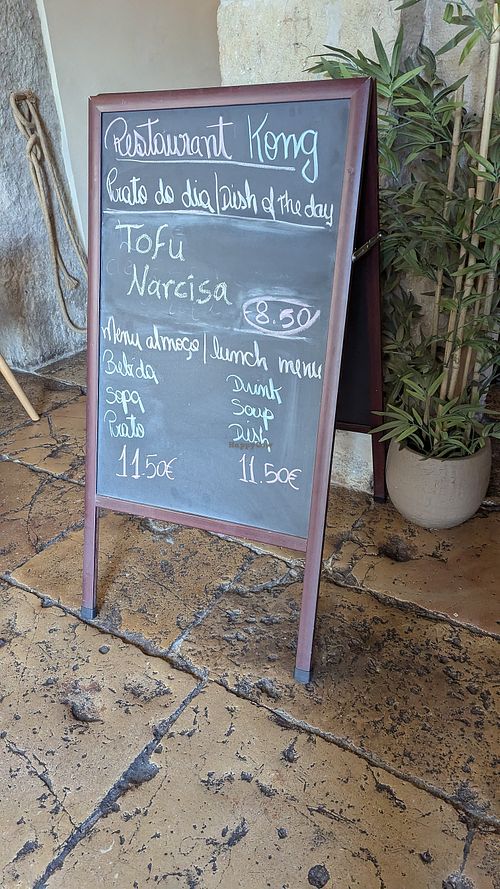 Restaurant Kong
Prato do dia/Dish of The day
Tofu
Narcisa
€8.50
Menu almoço/lunch menu
Bebida Drink
Sopa Soup
Prato Dish
11.50€ 11.50€